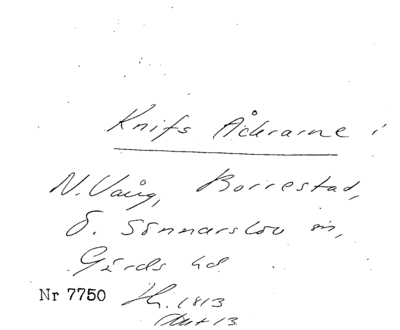 Knifs Åkrarne i
N. Vång, Borrestad,
Ö. Sönnarslöv sn,
Gärds hd
Nr 7750 H. 1813